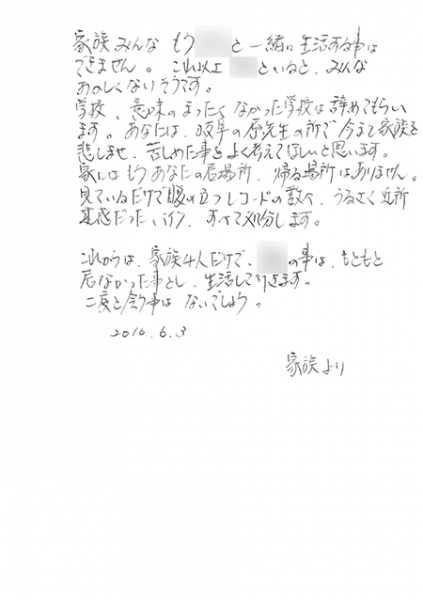 家族みんな もう と一緒に生活する事は
できません。これ以上 といると、みんな
おかしくないそうです。
学校、意味のまったくなかった学校は辞めてもらい
ます。あなたは、岐阜の原先生の所で今まで家族を
悲しませ、苦しめた事をよく考えてほしいと思います。
家にはもうあなたの居場所、帰る場所はありません。
見ているだけで腹の立つレコードの数々、うるさく近所
迷惑だったバイク、すべて処分します。
これからは、家族4人だけで、 の事は、もともと
居なかった事とし、生活して行きます。
二度と会う事はないでしょう。
2010.6.3
家族より